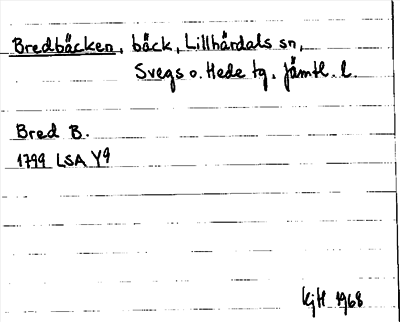 Bredbäcken, bäck, Lillhärdals sn,
Svegs o. Hede tg, Jämtl. l.
Bred B.
1799 LSA Y9
KjH 1968